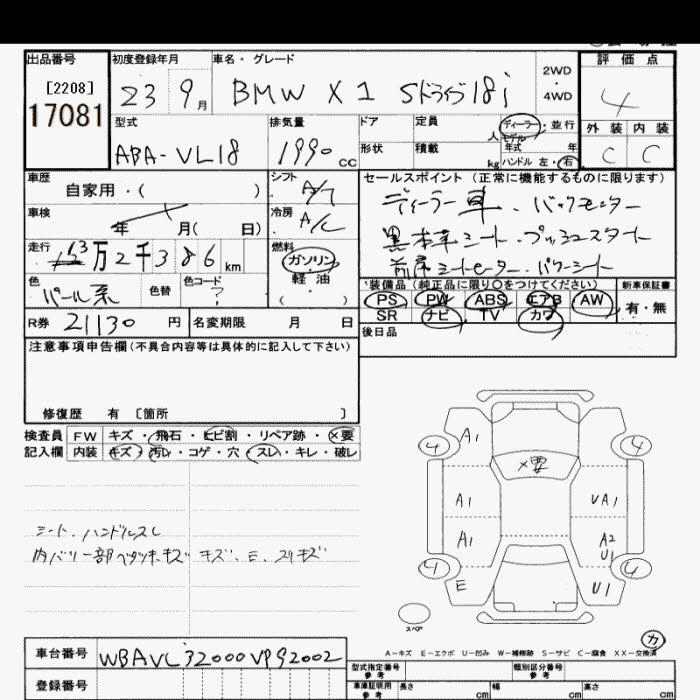 出品番号 初度登録年月 車名・グレード 評価点
[2208] 23 9月 BMW X1 Sドライブ18i 2WD・4WD 4
17081 外装 内装
型式 排気量 ドア 定員 人 ディーラー・並行 C C
ABA-VL18 1990 CC 形状 積載 kg モデル年式 年
ハンドル 左・右
車歴 自家用・( ) シフト A/T セールスポイント(正常に機能するものに限ります)
車検 年 月( 日) 冷房 A/C ディーラー車.バックモニター
黒本革シート.プッシュスタート
走行 万2千386km 燃料 ガソリン・軽油・( ) 前席シートヒーター.パワーシート
色 パール系 色替 色コード ? 装備品(純正品に限り○をつけてください) 新車保証書
PS PW ABS エアB AW 有・無
R券 21130円 名変期限 月 日 SR ナビ TV カワ
注意事項申告欄(不具合内容等は具体的に記入して下さい) 後日品
修復歴 有 〔箇所 〕
検査員 FW キズ・飛石・ヒビ割・リペア跡・×要
記入欄 内装 キズ・汚レ・コゲ・穴・スレ・キレ・破レ
4 A1 4
×要
A1 UA1
A1 A2
U1
4 E U1 4
シート.ハンドルスレ
内バリ一部ベタツキ.キズ キズ.E.スリキズ
スペア
カ
A-キズ E-エクボ U-凹み W-補修跡 S-サビ C-腐食 XX-交換済
車台番号 WBAVL32000VP92002 型式指定番号 参考 類別区分番号 参考
登録番号 車庫証明用 参考 長さ cm 幅 cm 高さ cm